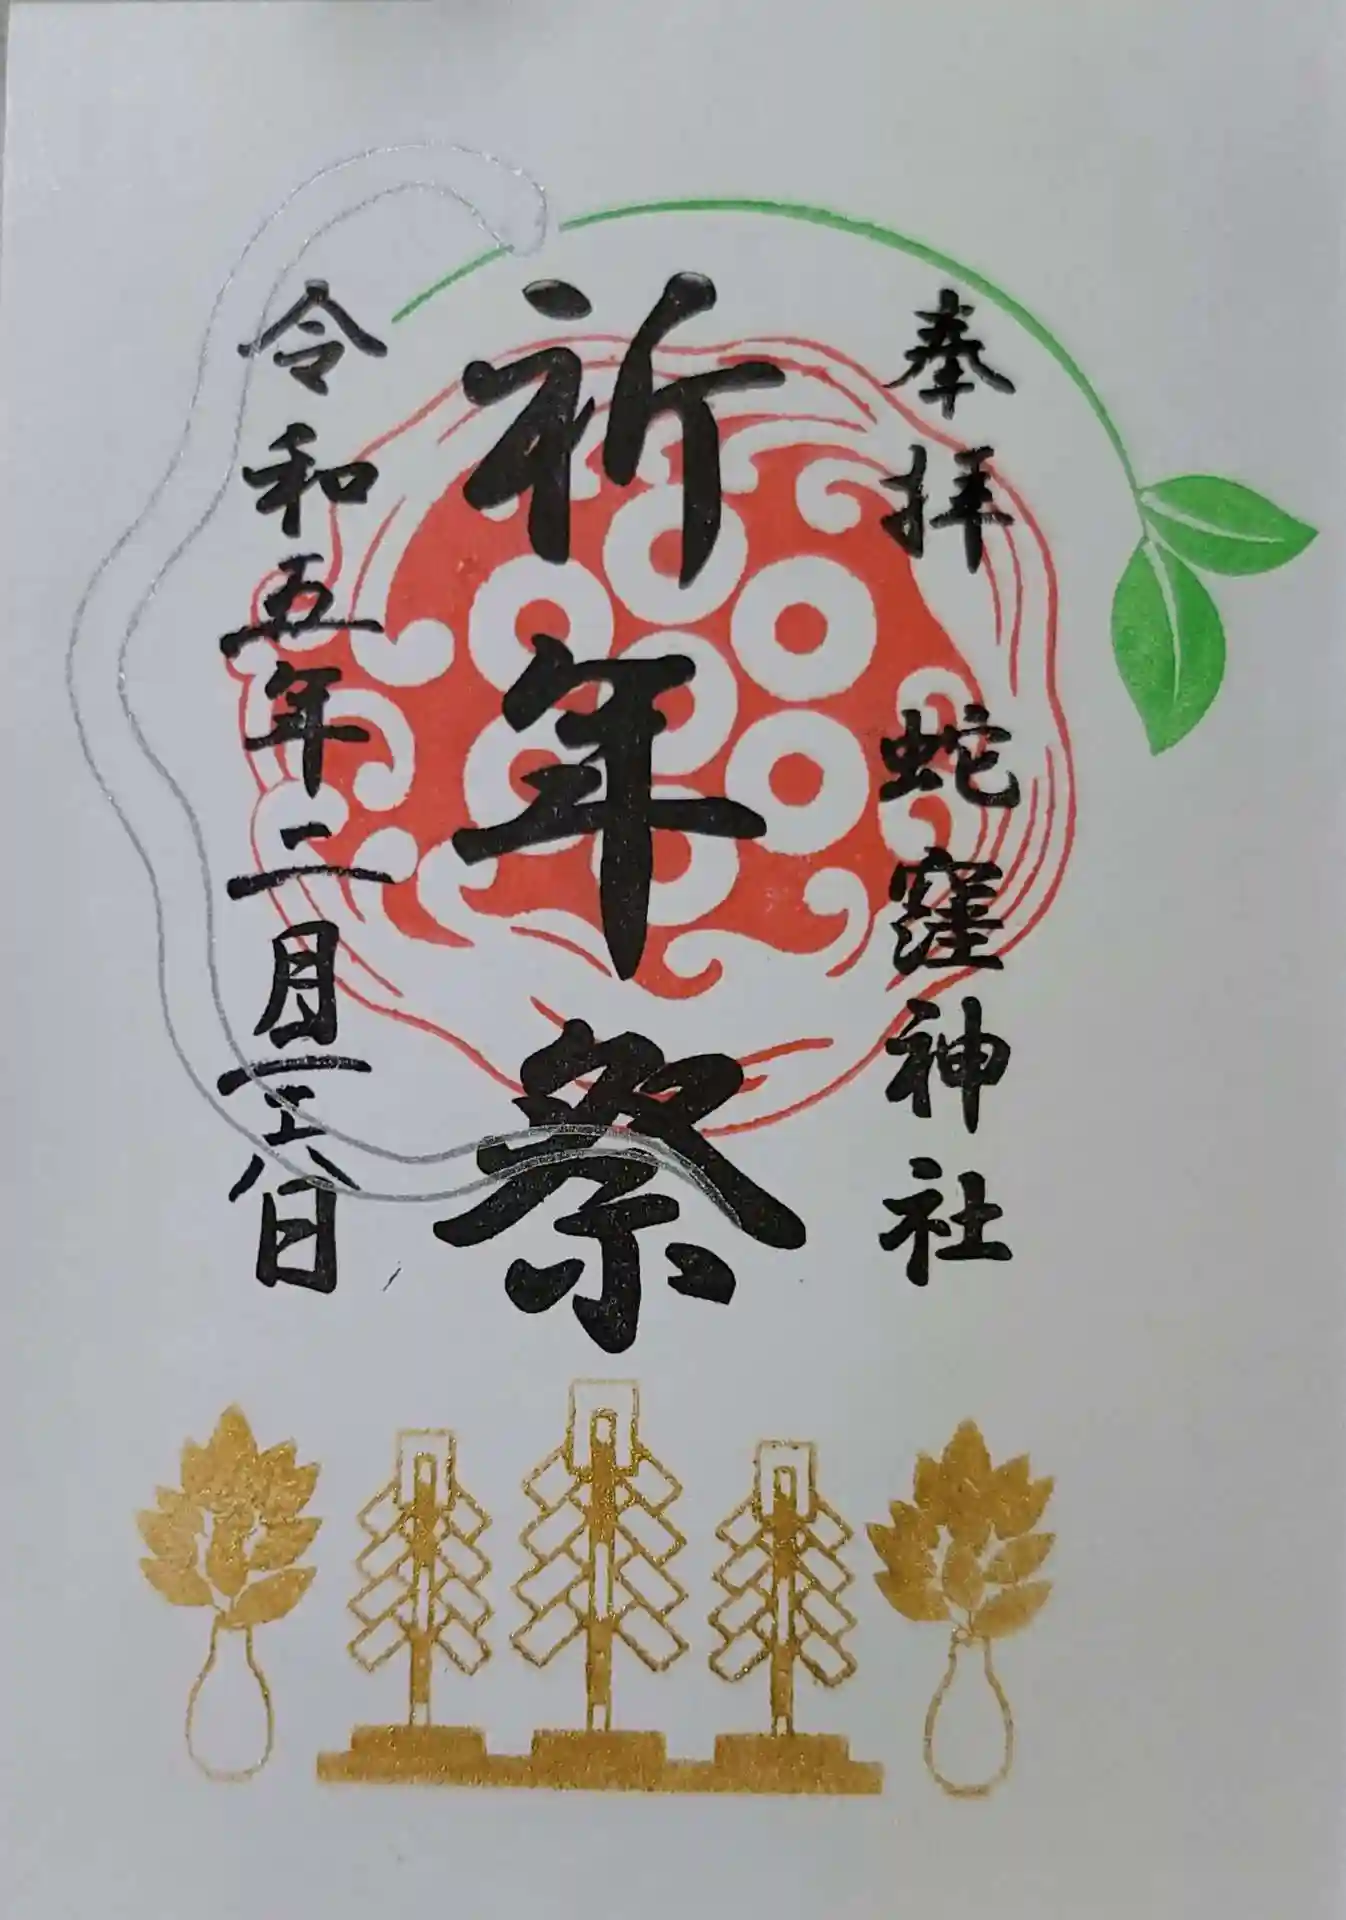 奉拝 蛇窪神社
祈年祭
令和五年二月二十八日